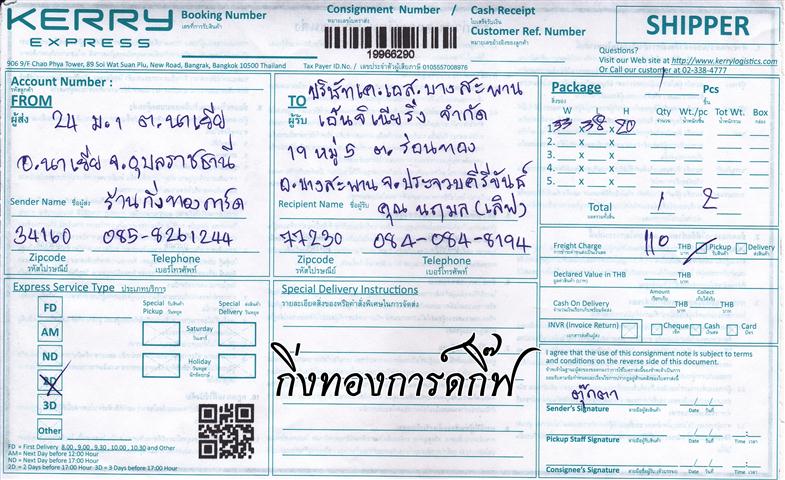 KERRY EXPRESS
Booking Number
เลขที่การรับสินค้า
Consignment Number / หมายเลขใบตราส่ง
19966290
Cash Receipt
ใบเสร็จรับเงิน
Customer Ref. Number
หมายเลขอ้างอิงของลูกค้า
SHIPPER
Questions?
Visit our Web site at http://www.kerrylogistics.com
Or Call our customer at 02-338-4777
906 9/F Chao Phya Tower, 89 Soi Wat Suan Plu, New Road, Bangrak, Bangkok 10500 Thailand
Tax Payer ID.No. / เลขประจำตัวผู้เสียภาษี 0105557008976
Account Number :
รหัสลูกค้า
FROM
ผู้ส่ง
24 ม.1 ต.นาเยีย
อ.นาเยีย จ.อุบลราชธานี
Sender Name ชื่อผู้ส่ง ร้านกิ่งทองการ์ด
34160 085-8261244
Zipcode Telephone
รหัสไปรษณีย์ เบอร์โทรศัพท์
TO
ผู้รับ
บริษัทเค.เอส.บางสะพาน
เอ็นจิเนียริ่ง จำกัด
19 หมู่ 5 ต.ร่อนทอง
อ.บางสะพาน จ.ประจวบคีรีขันธ์
Recipient Name ชื่อผู้รับ คุณ นฤมล (เลิฟ)
77230 084-084-8194
Zipcode Telephone
รหัสไปรษณีย์ เบอร์โทรศัพท์
Package 1 Pcs
สิ่งของ ชิ้น
W L H Qty Wt./pc Tot Wt. Box
1. 33 x 38 x 20
2. x x
3. x x
4. x x
5. x x
Total 1 2
Freight Charge 110 THB Pickup Delivery
Declared Value in THB THB
Amount Collect
Cash On Delivery THB THB
INVR (Invoice Return) Cheque Cash Card
Express Service Type ประเภทบริการ
Special Pickup Special Delivery
FD
AM
ND
2D
3D
Other
Saturday
วันเสาร์
Holiday
วันหยุดนักขัตฤกษ์
FD = First Delivery 8.00 , 9.00 , 9.30 , 10.00 , 10.30 and Other
AM = Next Day before 12:00 Hour
ND = Next Day before 17:00 Hour
2D = 2 Days before 17:00 Hour 3D = 3 Days before 17:00 Hour
Special Delivery Instructions
รายละเอียดสิ่งของหรือคำสั่งพิเศษในการจัดส่ง
กิ่งทองการ์ดกิ๊ฟ
I agree that the use of this consignment note is subject to terms
and conditions on the reverse side of this document.
ตุ๊กตา
Sender's Signature ลายมือชื่อผู้ส่งสินค้า Date วันที่
Pickup Staff Signature Date วันที่ Time เวลา
Consignee's Signature Date วันที่ Time เวลา